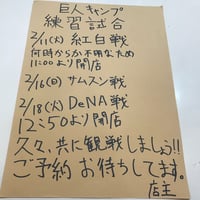 巨人キャンプ
練習試合
2/11(火)紅白戦
何時からか不明なため
11:00より開店
2/16(日)サムスン戦
2/18(火)DeNA戦
12:50より開店
久々、共に観戦しましょう!!
ご予約お待ちしてます。
店主